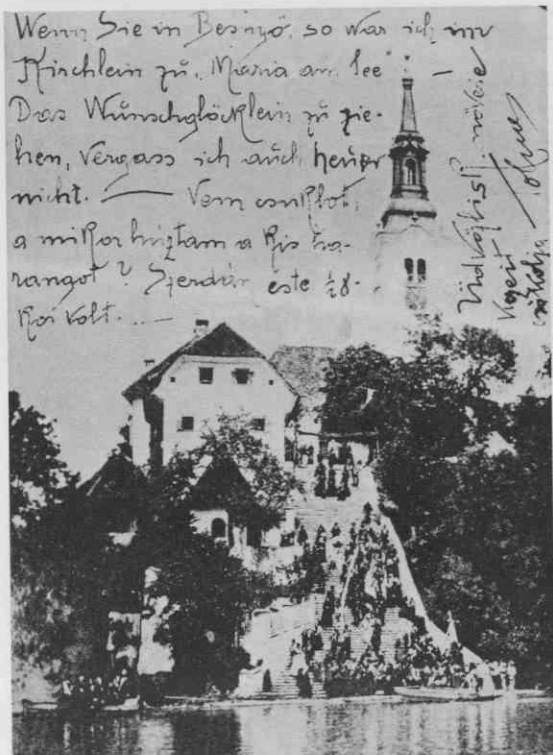 Wenn Sie in Besnyö, so war ich im
Kirchlein zu, Maria am See" —
Das Wunschglöcklein zu zie-
hen, vergass ich auch heuer
nicht. — Nem csuklott,
a mikor húztam a kis ha-
rangot? Szerdán este ½8-
kor volt. —
kezeit